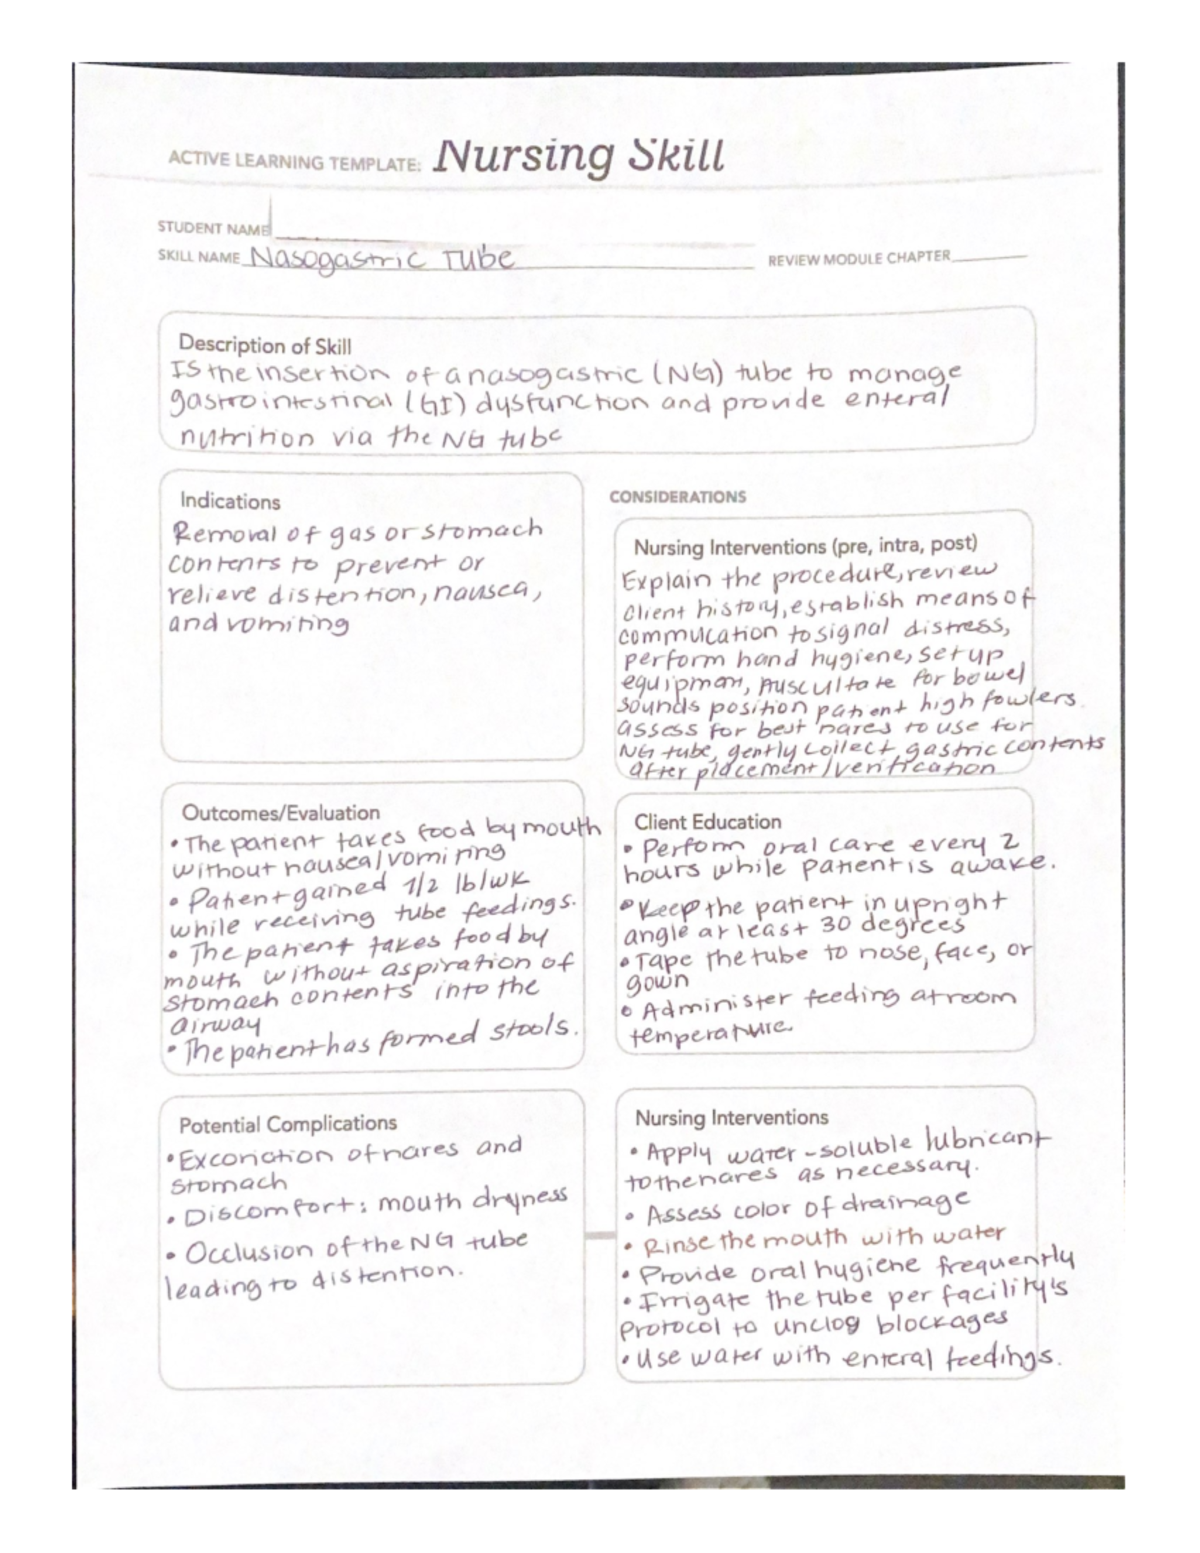 ACTIVE LEARNING TEMPLATE: Nursing Skill
STUDENT NAME
SKILL NAME Nasogastric Tube
REVIEW MODULE CHAPTER
Description of Skill
Is the insertion of a nasogastric (NG) tube to manage
gastrointestinal (GI) dysfunction and provide enteral
nutrition via the NG tube
Indications
Removal of gas or stomach
contents to prevent or
relieve distention, nausea,
and vomiting
CONSIDERATIONS
Nursing Interventions (pre, intra, post)
Explain the procedure, review
client history, establish means of
commucation to signal distress,
perform hand hygiene, set up
equipment, Auscultate for bowel
sounds position patient high fowlers.
assess for best nares to use for
NG tube, gently collect gastric contents
after placement/verification
Outcomes/Evaluation
• The patient takes food by mouth
without nausea/vomiting
• Patient gained 1/2 lb/wk
while receiving tube feedings.
• The patient takes food by
mouth without aspiration of
stomach contents into the
airway
• The patient has formed stools.
Client Education
• Perform oral care every 2
hours while patient is awake.
• Keep the patient in upright
angle at least 30 degrees
• Tape the tube to nose, face, or
gown
• Administer feeding at room
temperature.
Potential Complications
• Excoriation of nares and
stomach
• Discomfort: mouth dryness
• Occlusion of the NG tube
leading to distention.
Nursing Interventions
• Apply water-soluble lubricant
to the nares as necessary.
• Assess color of drainage
• Rinse the mouth with water
• Provide oral hygiene frequently
• Irrigate the tube per facility's
Protocol to unclog blockages
• Use water with enteral feedings.